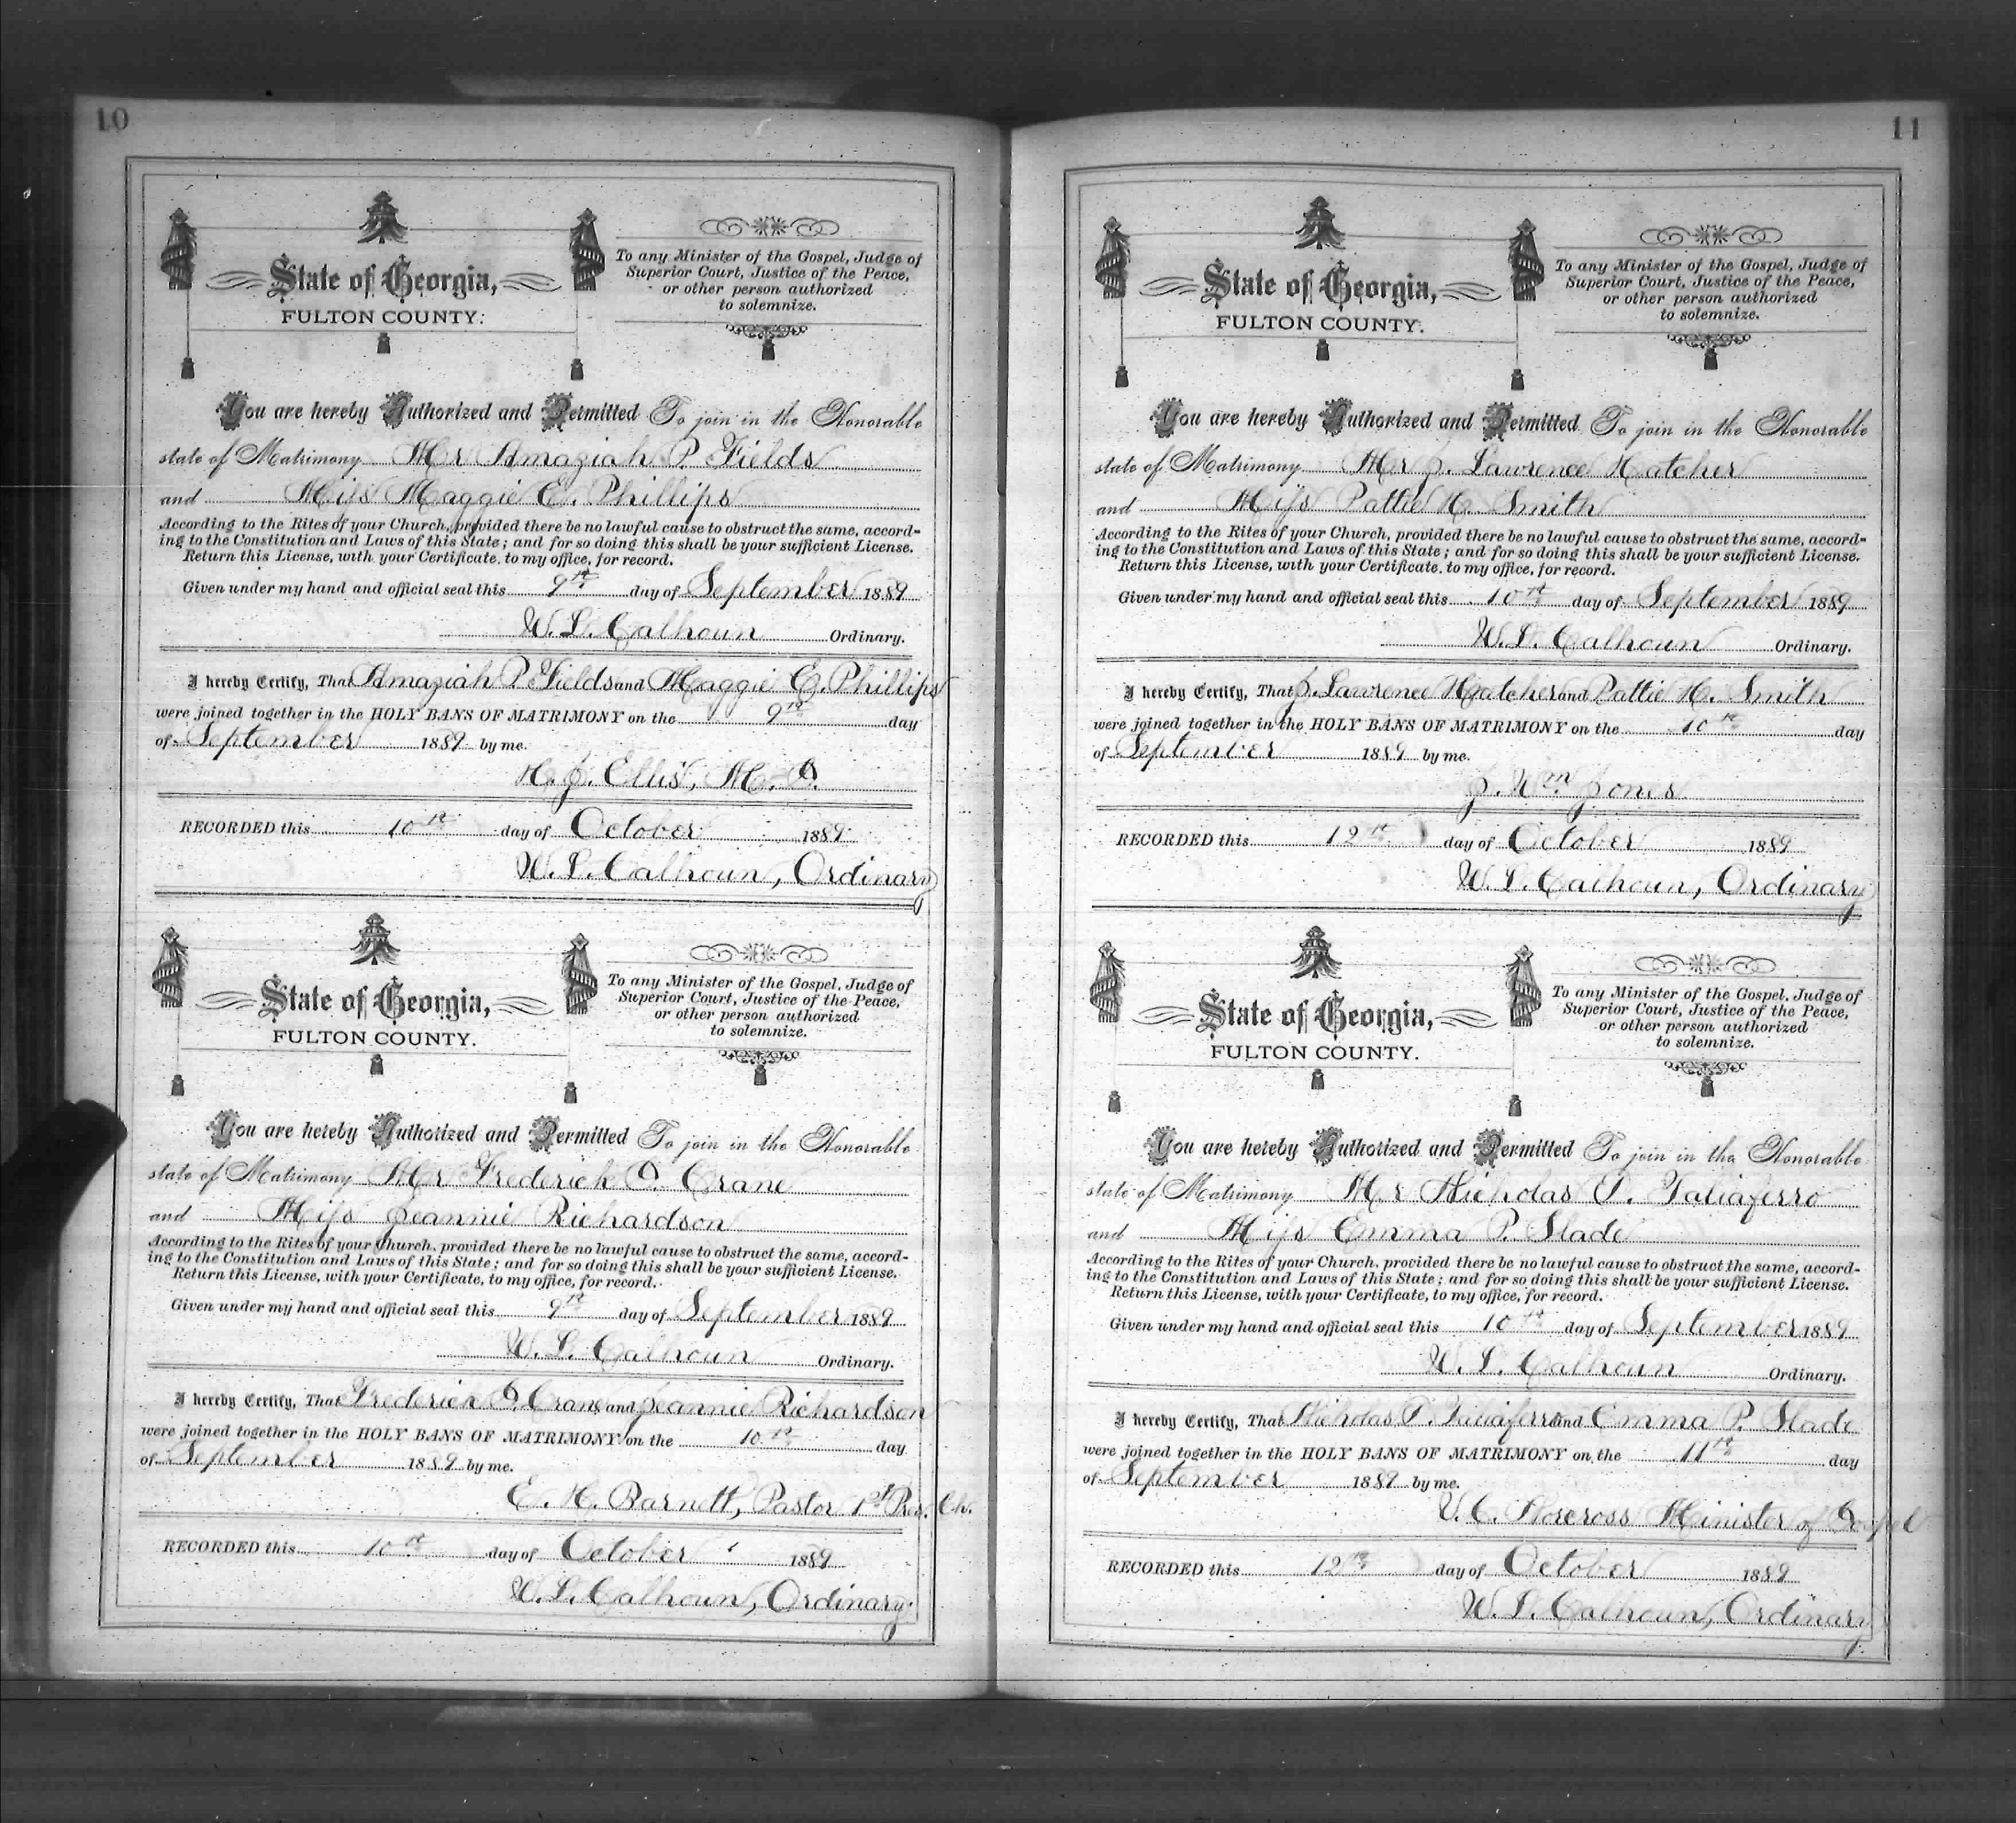 10
State of Georgia,
FULTON COUNTY:
To any Minister of the Gospel, Judge of
Superior Court, Justice of the Peace,
or other person authorized
to solemnize.
You are hereby Authorized and Permitted To join in the Honorable
state of Matrimony Mr Amaziah P. Fields
and Miss Maggie E. Phillips
According to the Rites of your Church, provided there be no lawful cause to obstruct the same, accord-
ing to the Constitution and Laws of this State; and for so doing this shall be your sufficient License.
Return this License, with your Certificate, to my office, for record.
Given under my hand and official seal this 9th day of September 1889
W. L. Calhoun Ordinary.
I hereby Certify, That Amaziah P. Fields and Maggie E. Phillips
were joined together in the HOLY BANS OF MATRIMONY on the 9th day
of September 1889 by me.
H. J. Ellis, M. G.
RECORDED this 10th day of October 1889
W. L. Calhoun, Ordinary
State of Georgia,
FULTON COUNTY.
To any Minister of the Gospel, Judge of
Superior Court, Justice of the Peace,
or other person authorized
to solemnize.
You are hereby Authorized and Permitted To join in the Honorable
state of Matrimony Mr Frederick D. Crane
and Miss Jeannie Richardson
According to the Rites of your Church, provided there be no lawful cause to obstruct the same, accord-
ing to the Constitution and Laws of this State; and for so doing this shall be your sufficient License.
Return this License, with your Certificate, to my office, for record.
Given under my hand and official seal this 9th day of September 1889
W. L. Calhoun Ordinary.
I hereby Certify, That Frederick D. Crane and Jeannie Richardson
were joined together in the HOLY BANS OF MATRIMONY on the 10th day
of September 1889 by me.
E. H. Barnett, Pastor 1st Pres. Ch.
RECORDED this 10th day of October 1889
W. L. Calhoun, Ordinary.
11
State of Georgia,
FULTON COUNTY.
To any Minister of the Gospel, Judge of
Superior Court, Justice of the Peace,
or other person authorized
to solemnize.
You are hereby Authorized and Permitted To join in the Honorable
state of Matrimony Mr J. Lawrence Hatcher
and Miss Pattie H. Smith
According to the Rites of your Church, provided there be no lawful cause to obstruct the same, accord-
ing to the Constitution and Laws of this State; and for so doing this shall be your sufficient License.
Return this License, with your Certificate, to my office, for record.
Given under my hand and official seal this 10th day of September 1889
W. L. Calhoun Ordinary.
I hereby Certify, That J. Lawrence Hatcher and Pattie H. Smith
were joined together in the HOLY BANS OF MATRIMONY on the 10th day
of September 1889 by me.
J. Wm Jones
RECORDED this 12th day of October 1889
W. L. Calhoun, Ordinary
State of Georgia,
FULTON COUNTY.
To any Minister of the Gospel, Judge of
Superior Court, Justice of the Peace,
or other person authorized
to solemnize.
You are hereby Authorized and Permitted To join in the Honorable
state of Matrimony Mr Nicholas T. Taliaferro
and Miss Emma P. Slade
According to the Rites of your Church, provided there be no lawful cause to obstruct the same, accord-
ing to the Constitution and Laws of this State; and for so doing this shall be your sufficient License.
Return this License, with your Certificate, to my office, for record.
Given under my hand and official seal this 10th day of September 1889
W. L. Calhoun Ordinary.
I hereby Certify, That Nicholas T. Taliaferro and Emma P. Slade
were joined together in the HOLY BANS OF MATRIMONY on the 11th day
of September 1889 by me.
V. C. Norcross Minister of Gospel
RECORDED this 12th day of October 1889
W. L. Calhoun, Ordinary